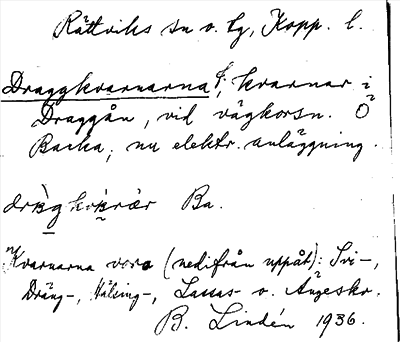 Rättviks sn o. tg, Kopp. l.
Draggkvarnarna f., kvarnar i
Draggån, vid vägkorsn. Ö
Backa; nu elektr. anläggning.
Ba.
"Kvarnarna voro (nedifrån uppåt): Svi-,
Dräng-, Hälsing-, Lassas- o. Anzeskv.
B. Lindén 1936.